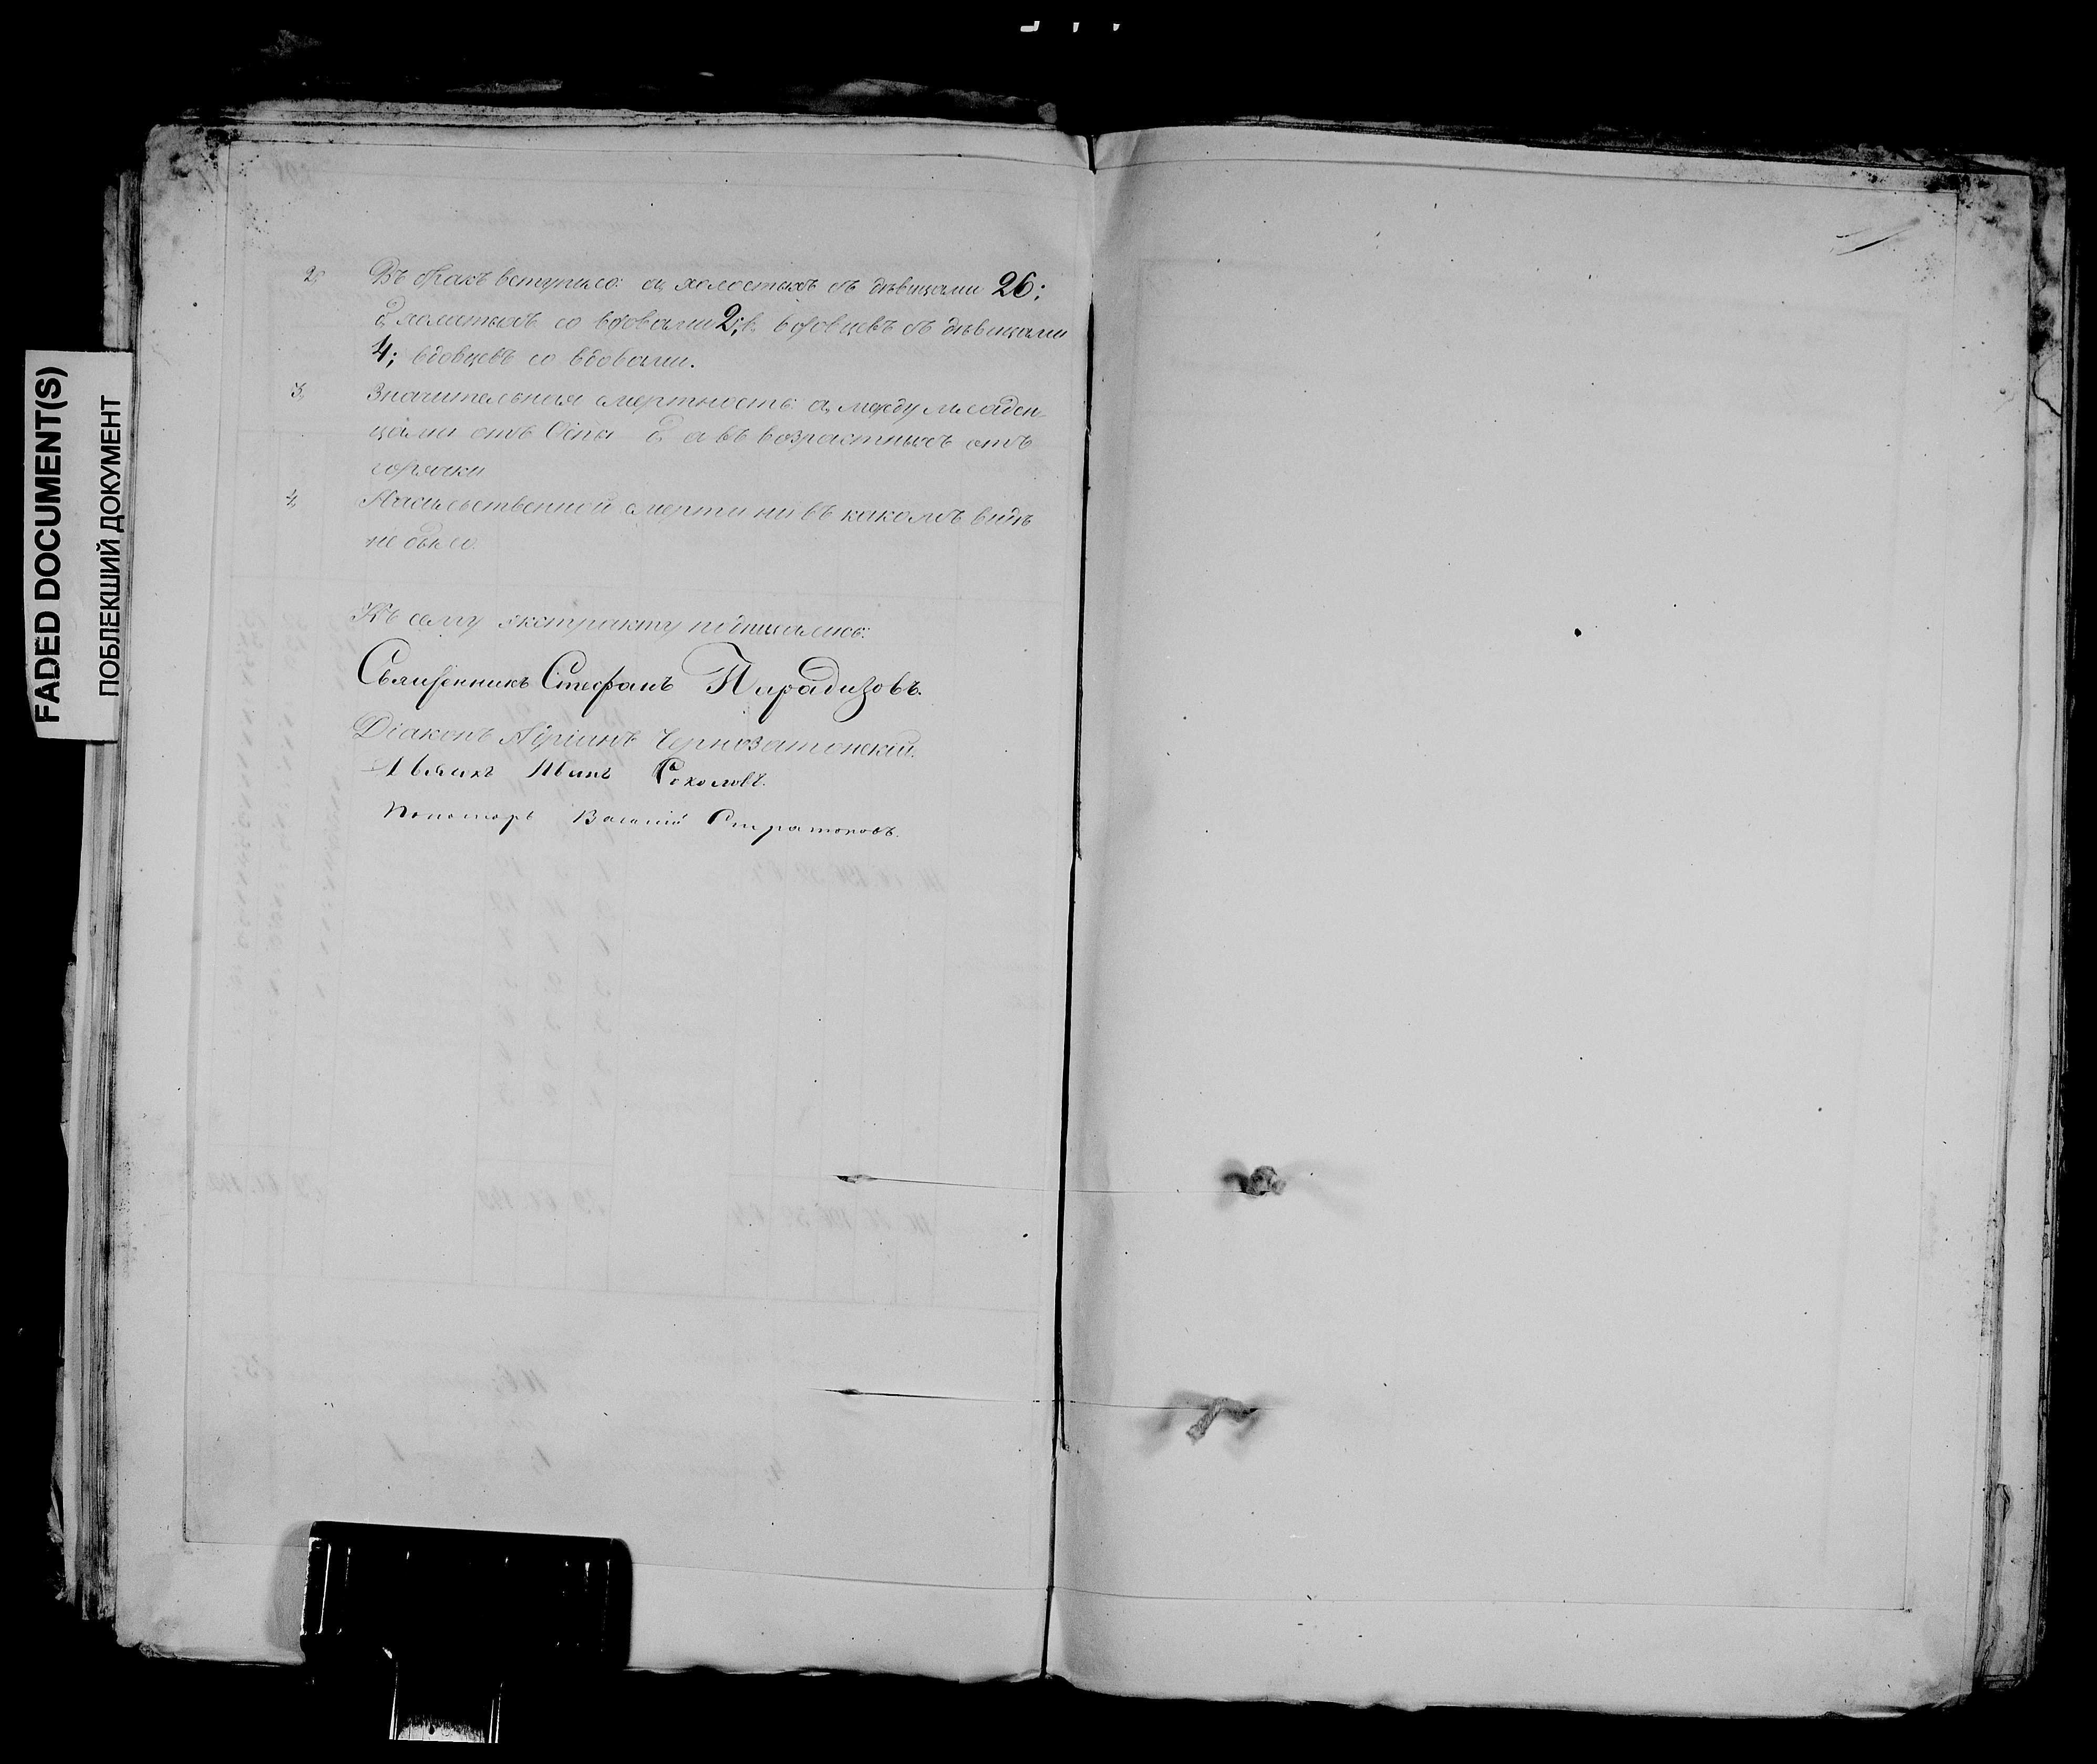 FADED DOCUMENT(S)
ПОБЛЕКШИЙ ДОКУМЕНТ
2, Въ бракъ вступило: а, холостыхъ съ дѣвицами 26;
б, холостыхъ со вдовами 2; в, вдовцевъ съ дѣвицами
4; вдовцевъ со вдовами.
3, Значительная смертность: а, между младен-
цами отъ Оспы б, а въ возрастныхъ отъ
горячки
4, Насильственной смерти ни въ какомъ видѣ
не было.
Къ сему экстракту подписались:
Священникъ Стефанъ Парадизовъ.
Діаконъ Адріанъ Чернозатонскій.
Дьячекъ Иванъ Соколовъ.
Пономарь Василій Стратоновъ.